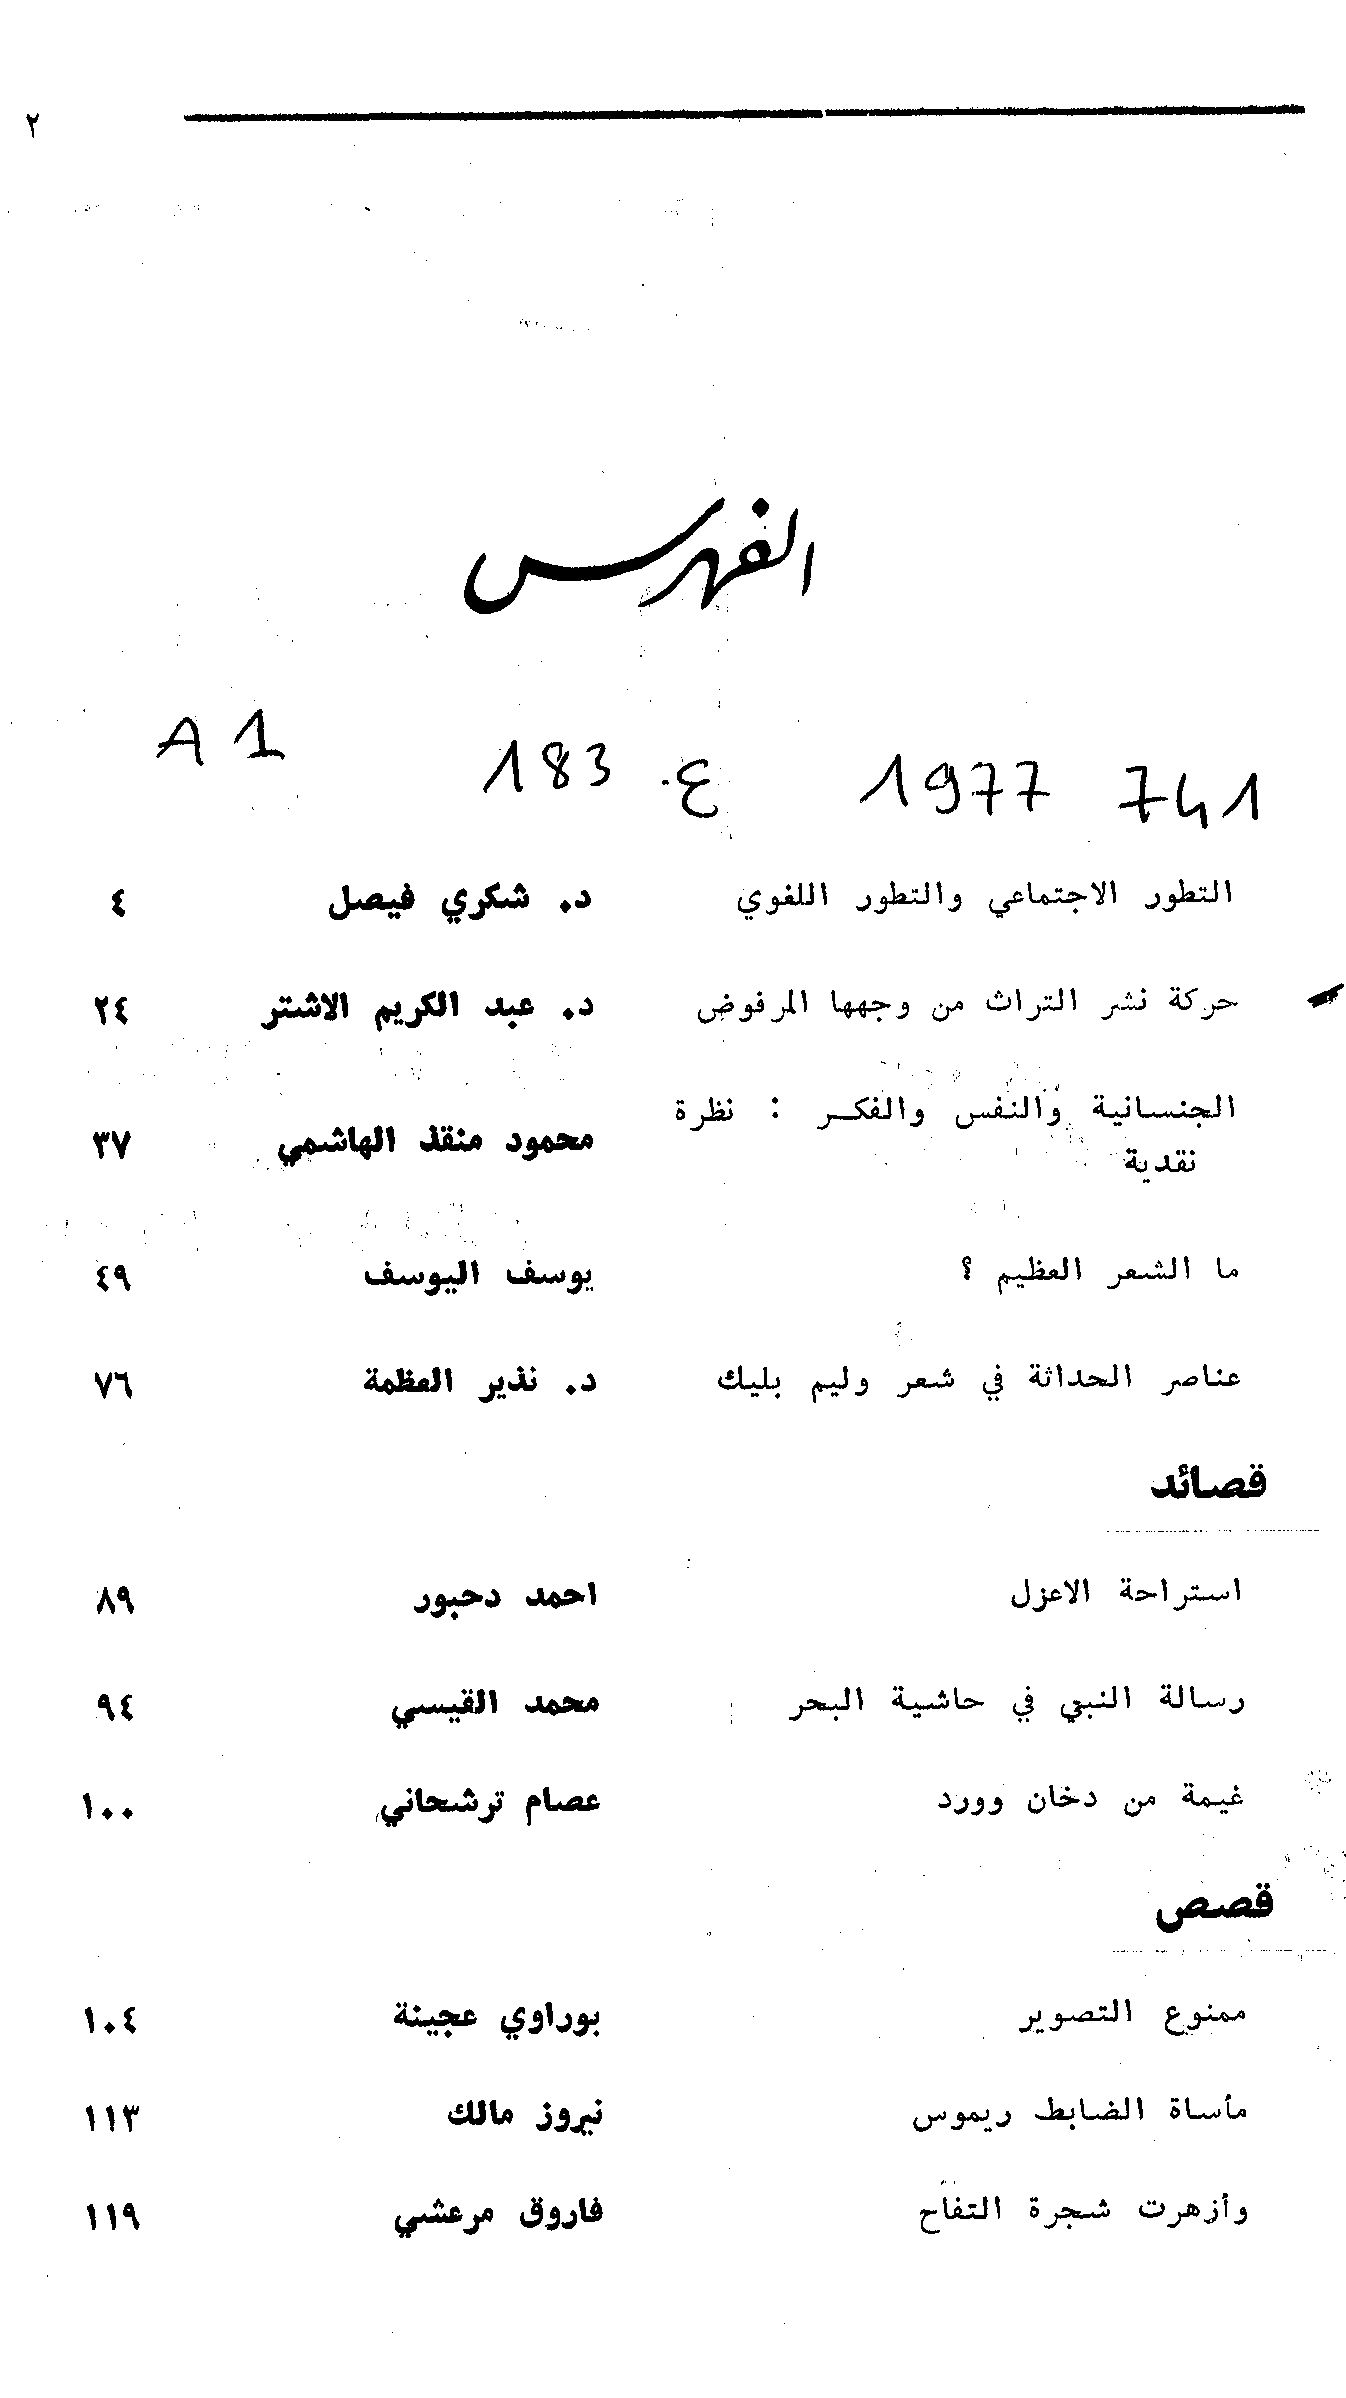 ٢
الفهرس
741 1977 ع. 183 A1
التطور الاجتماعي والتطور اللغوي د. شكري فيصل ٤
حركة نشر التراث من وجهها المرفوض د. عبد الكريم الاشتر ٢٤
الجنسانية والنفس والفكر : نظرة
نقدية محمود منقذ الهاشمي ٣٧
ما الشعر العظيم ؟ يوسف اليوسف ٤٩
عناصر الحداثة في شعر وليم بليك د. نذير العظمة ٧٦
قصائد
استراحة الاعزل احمد دحبور ٨٩
رسالة النبي في حاشية البحر محمد القيسي ٩٤
غيمة من دخان وورد عصام ترشحاني ١٠٠
قصص
ممنوع التصوير بوراوي عجينة ١٠٤
مأساة الضابط ريموس نيروز مالك ١١٣
وأزهرت شجرة التفاح فاروق مرعشي ١١٩